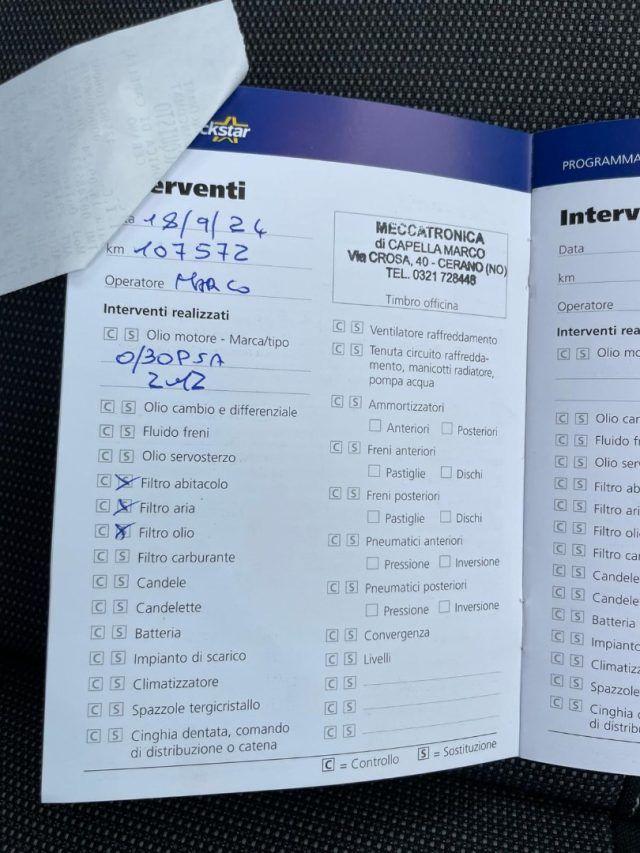 ckstar
erventi
a 18/9/24
km 107572
Operatore MARCO
Interventi realizzati
C S Olio motore - Marca/tipo
0/30 PSA
2312
C S Olio cambio e differenziale
C S Fluido freni
C S Olio servosterzo
C S Filtro abitacolo
C S Filtro aria
C S Filtro olio
C S Filtro carburante
C S Candele
C S Candelette
C S Batteria
C S Impianto di scarico
C S Climatizzatore
C S Spazzole tergicristallo
C S Cinghia dentata, comando
di distribuzione o catena
MECCATRONICA
di CAPELLA MARCO
Via CROSA, 40 - CERANO (NO)
TEL. 0321 728448
Timbro officina
C S Ventilatore raffreddamento
C S Tenuta circuito raffredda-
mento, manicotti radiatore,
pompa acqua
C S Ammortizzatori
Anteriori Posteriori
C S Freni anteriori
Pastiglie Dischi
C S Freni posteriori
Pastiglie Dischi
C S Pneumatici anteriori
Pressione Inversione
C S Pneumatici posteriori
Pressione Inversione
C S Convergenza
C S Livelli
C S
C S
C S
C = Controllo S = Sostituzione
PROGRAMMA
Interv
Data
km
Operatore
Interventi rea
C S Olio mo
C S Olio car
C S Fluido f
C S Olio ser
C S Filtro ab
C S Filtro ari
C S Filtro oli
C S Filtro ca
C S Candele
C S Candele
C S Batteria
C S Impianto
C S Climatizz
C S Spazzole
C S Cinghia d
di distribu